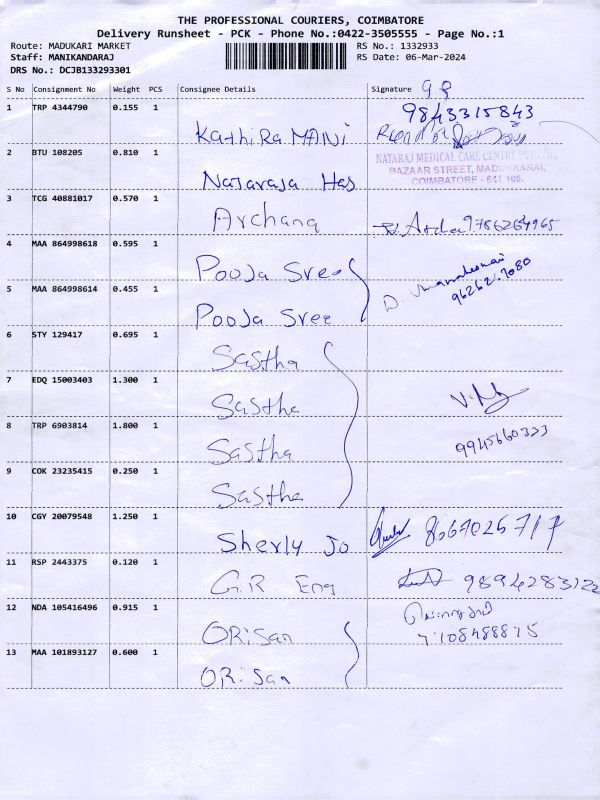 THE PROFESSIONAL COURIERS, COIMBATORE
Delivery Runsheet - PCK - Phone No.:0422-3505555 - Page No.:1
Route: MADUKARI MARKET RS No.: 1332933
Staff: MANIKANDARAJ RS Date: 06-Mar-2024
DRS No.: DCJB133293301
S No Consignment No. Weight PCS Consignee Details Signature
1 TRP 4344790 0.155 1 KathiRaMANi 9843315843
2 BTU 108205 0.810 1 Nataraja Has
NATARAJ MEDICAL CARE CENTRE
BAZAAR STREET, MADUKKARAI,
COIMBATORE - 641 105.
3 TCG 40881017 0.570 1 Archana 9786264965
4 MAA 864998618 0.595 1 Pooja Sree
5 MAA 864998614 0.455 1 Pooja Sree
6 STY 129417 0.695 1 Sastha
7 EDQ 15003403 1.300 1 Sastha
8 TRP 6903814 1.800 1 Sastha 9945660333
9 COK 23235415 0.250 1 Sastha
10 CGY 20079548 1.250 1 Sherly Jo 8667025717
11 RSP 2443375 0.120 1 G.R Eng 9894283122
12 NDA 105416496 0.915 1 ORiSan 7108488815
13 MAA 101893127 0.600 1 ORiSan